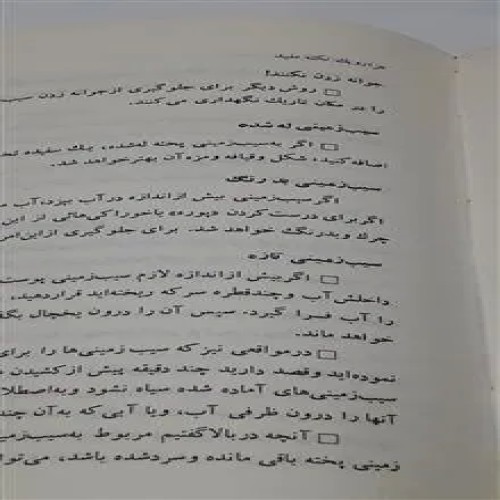 هزارویک نکته مفید
جوانه زدن نکنند!
□ روش دیگر برای جلوگیری از جوانه زدن سیب
را در مکان تاریک نگهداری می‌کنند.
سیب‌زمینی له‌شده
□ اگر به‌سیب‌زمینی پخته له‌شده، یک سفیده تخم
اضافه کنید، شکل و قیافه و مزه آن بهتر خواهد شد.
سیب‌زمینی بد رنگ
اگر سیب‌زمینی بیش از اندازه در آب بپزد، آب
اگر برای درست کردن «پوره» یا خوراکی‌هائی از این
چرک و بدرنگ خواهد شد. برای جلوگیری از این امر
سیب‌زمینی تازه
□ اگر بیش از اندازه لازم سیب‌زمینی پوست
داخلش آب و چند قطره سرکه ریخته‌اید قرار دهید،
را آب فسرا گیرد. سپس آن را درون یخچال بگذ
خواهد ماند.
□ در مواقعی نیز که سیب زمینی‌ها را برای
نموده‌اید و قصد دارید چند دقیقه پیش از کشیدن
سیب‌زمینی‌های آماده شده سیاه نشود و به‌اصطلا
آنها را درون ظرفی آب، ویا آبی که به‌آن چند
□ آنچه در بالا گفتیم مربوط به‌سیب‌زمی
زمینی پخته باقی مانده و سرد شده باشد، می‌توا